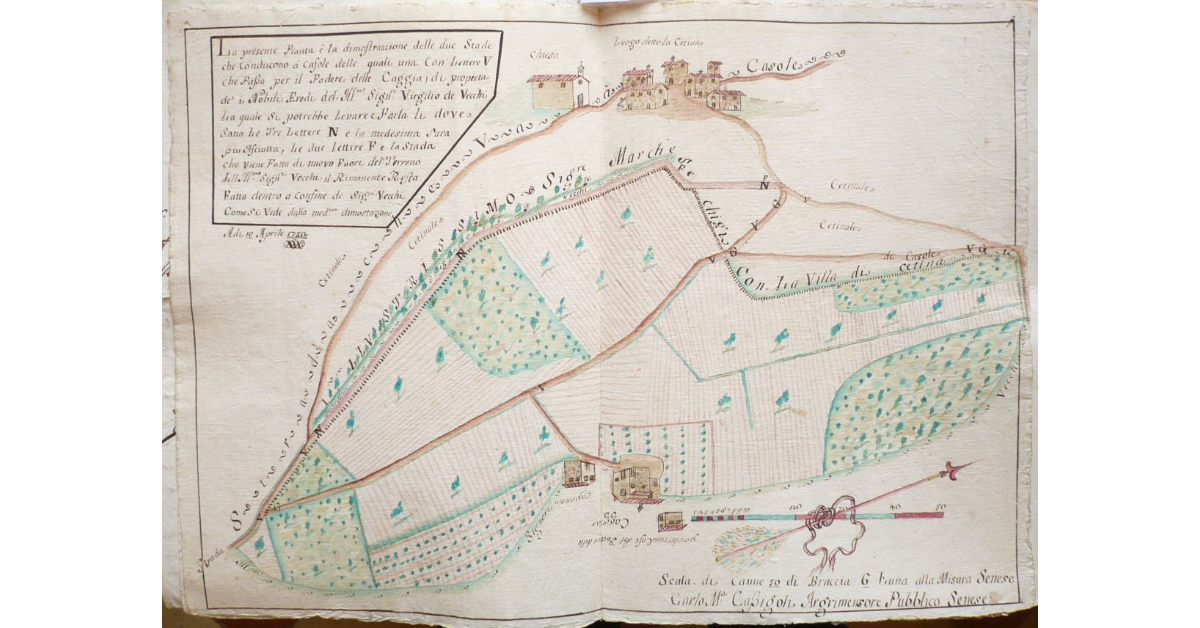 La presente Pianta è la dimostrazione delle due Stade
che Conducono à Casole delle quali una Con Lettere V
che Passa per il Podere delle Caggia, di propieta
de i Nobili Eredi del Ill.mo Sign.r Virgilio de Vecchi
La quale Si potrebbe Levare e Farla li dove
Sono Le Tre Lettere N e la medesima Sara
piu Asciutta, Le due Lettere F e la Stada
che Viene Fatta di nuovo Fuori del Terreno
dell Ill.mo Sign.r Vecchi il Rimanente Resta
Fatta dentro a Confine de Sig.ri Vecchi
Come Si Vede dalla med.ma dimostrazione
Adi 10 Aprile
Chiesa
Luogo detto la Cetina
Casole
Strada che Va a
Cetinale
Cetinale
Cetinale
Cetinale
N
ILLVSTRISSIMO Sigre Marchese
Chigi
Con La Villa di Cetina
di Casole
V
N
V
G
F
V
G
V
G
N
N
V
Strada
Signori
Vecchi
Capanna
Caggia
Scala di Canne 50 di Braccia 6 L'una alla Misura Senese
Carlo M.a Cassigoli Argrimensore Pubblico Senese